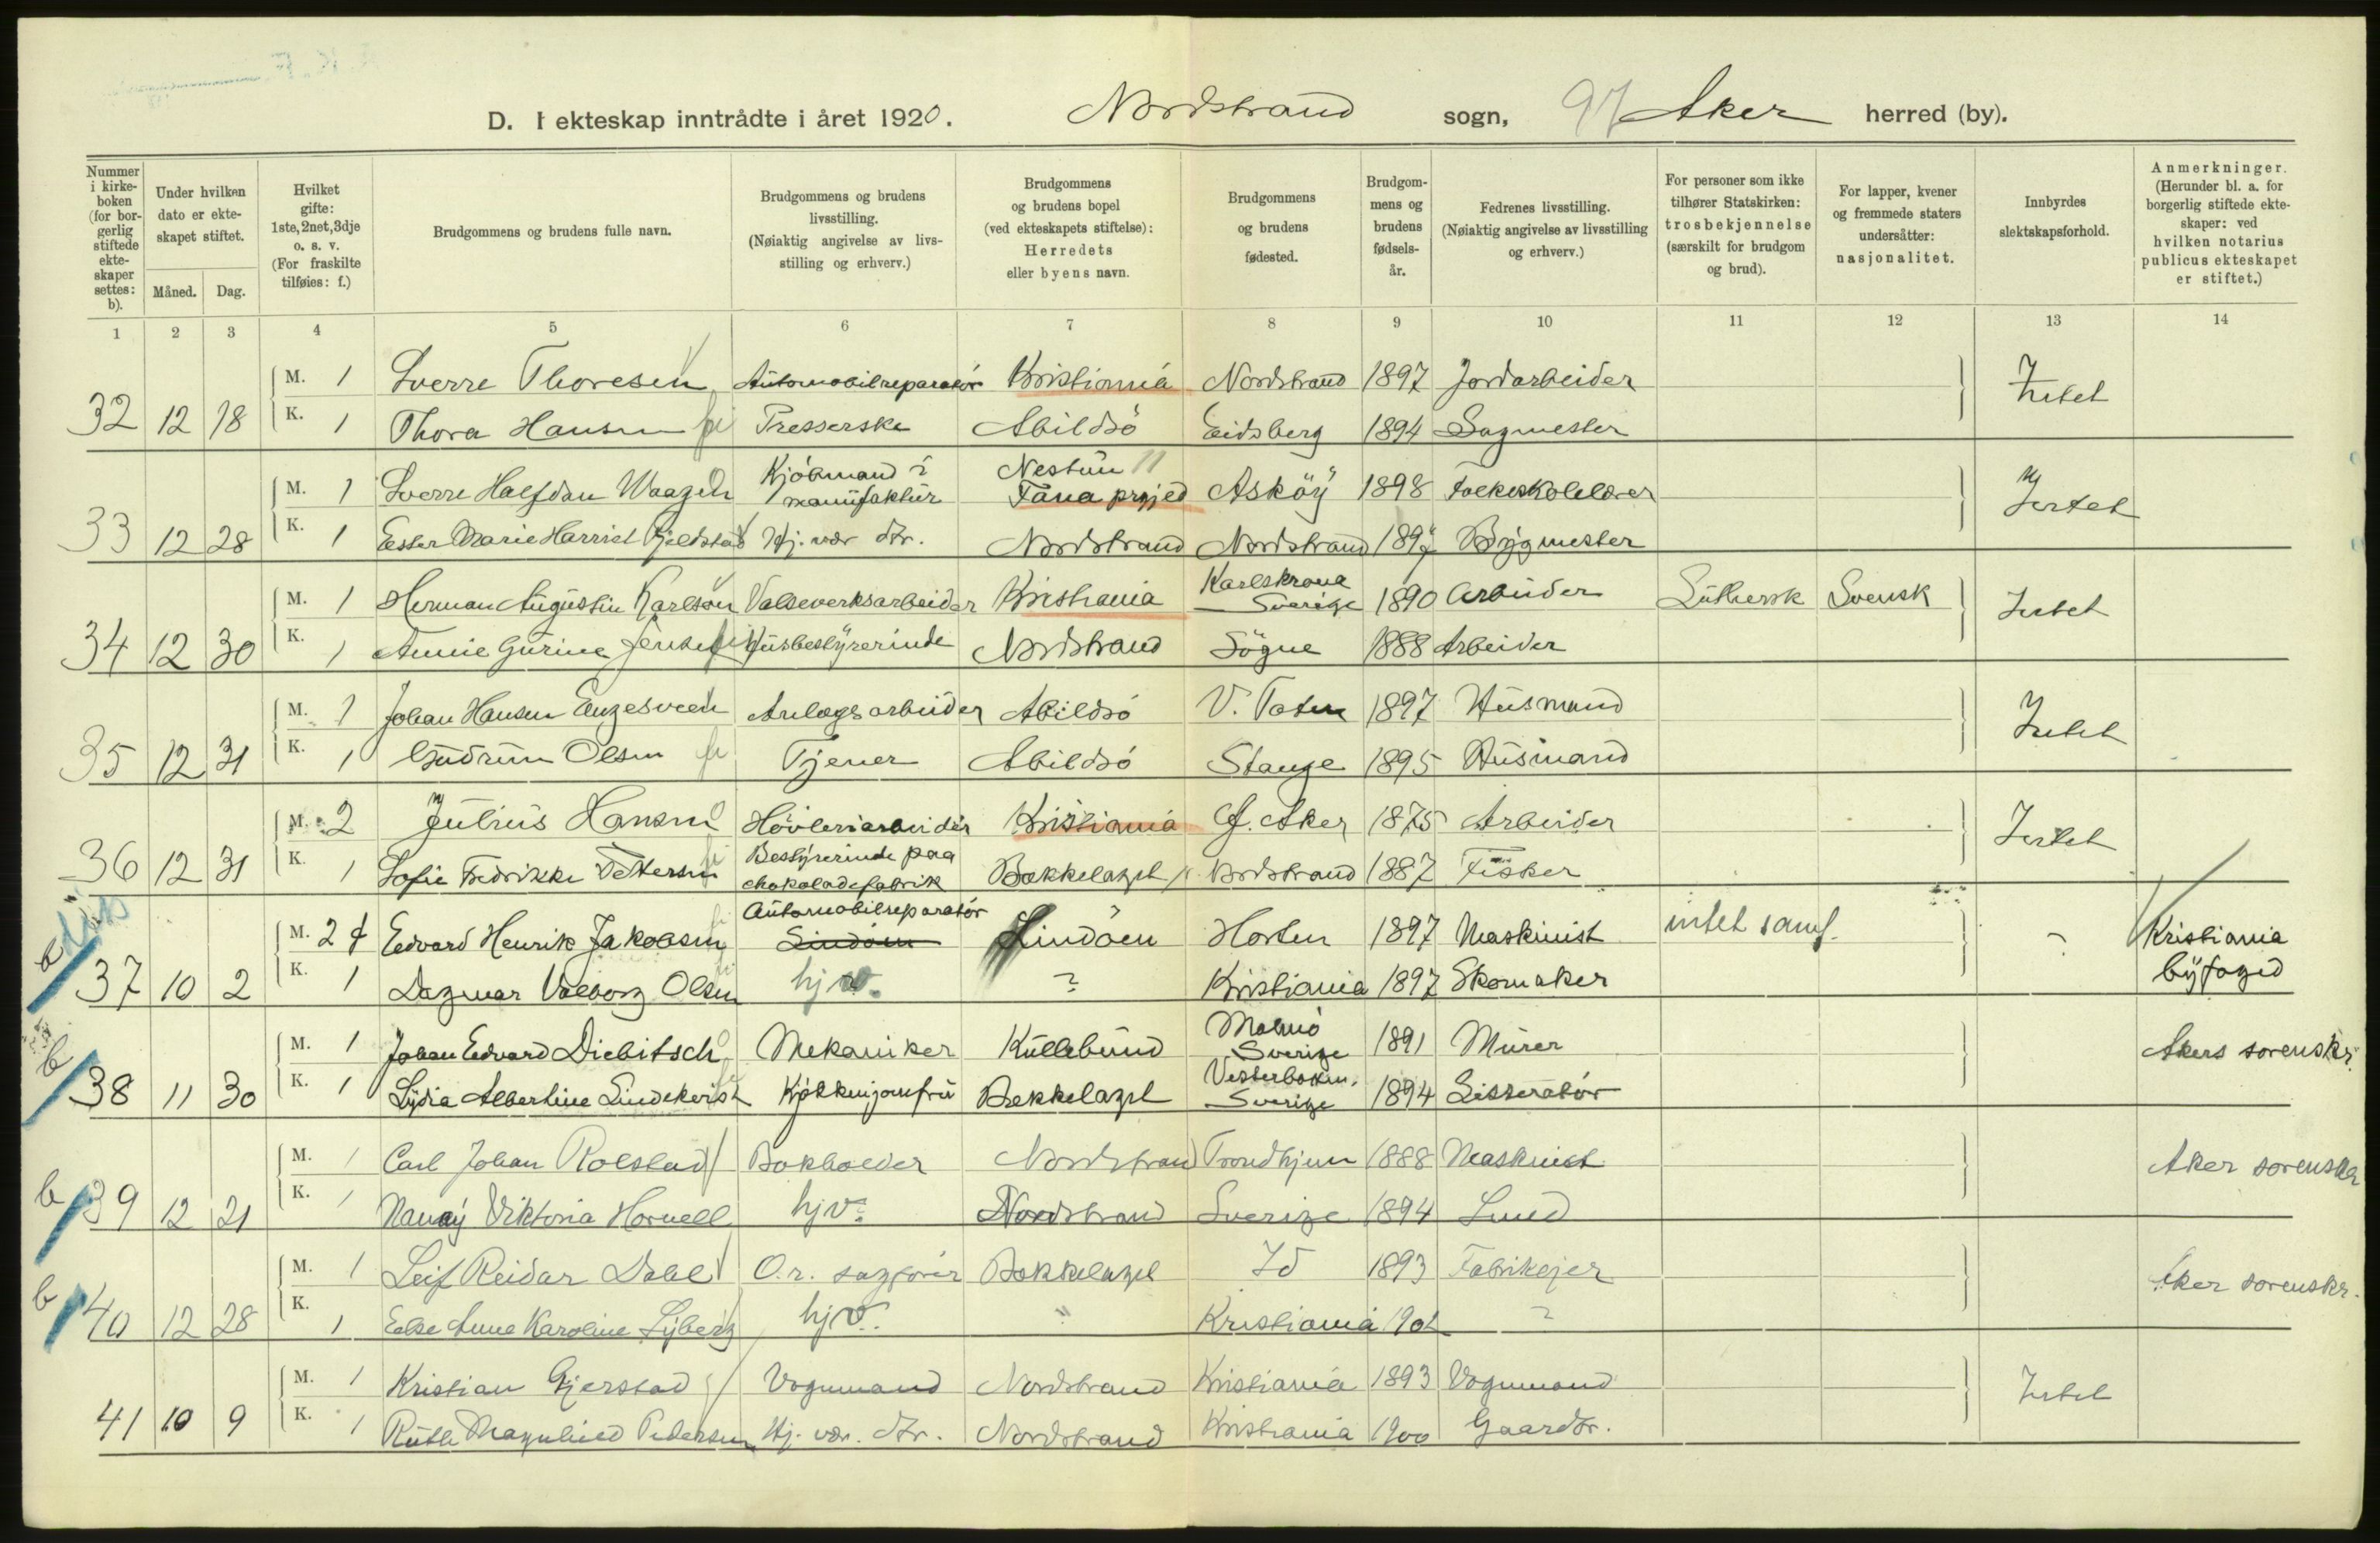 D. I ekteskap inntrådte i året 1920. Nordstrand sogn, 97 Aker herred (by).
Nummer i kirke-boken (for bor-gerlig stiftede ekte-skaper settes: b).
Under hvilken dato er ekte-skapet stiftet.
Måned. Dag.
Hvilket gifte: 1ste, 2net, 3dje o. s. v. (For fraskilte tilføies: f.)
Brudgommens og brudens fulle navn.
Brudgommens og brudens livsstilling. (Nøiaktig angivelse av livs-stilling og erhverv.)
Brudgommens og brudens bopel (ved ekteskapets stiftelse): Herredets eller byens navn.
Brudgommens og brudens fødested.
Brudgom-mens og brudens fødsels-år.
Fedrenes livsstilling. (Nøiaktig angivelse av livsstilling og erhverv.)
For personer som ikke tilhører Statskirken: trosbekjennelse (særskilt for brudgom og brud).
For lapper, kvener og fremmede staters undersåtter: nasjonalitet.
Innbyrdes slektskapsforhold.
Anmerkninger. (Herunder bl. a. for borgerlig stiftede ekte-skaper: ved hvilken notarius publicus ekteskapet er stiftet.)
1 2 3 4 5 6 7 8 9 10 11 12 13 14
M. 1 Sverre Thoresen Automobilreparatör Kristiania Nordstrand 1897 Jordarbeider Intet
32 12 18 K. 1 Thora Hansen Presserske Abildsö Eidsberg 1894 Sagmester
M. 1 Sverre Halfdan Waagen Kjöbmand i manufaktur Nestun Fana Asköy 1898 Folkeskolelærer Intet
33 12 28 K. 1 Ester Marie Harriet Gjeldstad Hj. vær. dtr. Nordstrand Nordstrand 1897 Bygmester
M. 1 Herman Augustin Karlson Valseverksarbeider Kristiania Karlskrona Sverige 1890 Arbeider Luthersk Svensk Intet
34 12 30 K. 1 Annie Gurine Jensen Husbestyrerinde Nordstrand Sögne 1888 Arbeider
M. 1 Johan Hansen Engesveen Anlægsarbeider Abildsö V. Toten 1897 Husmand Intet
35 12 31 K. 1 Gudrun Olsen Tjener Abildsö Stange 1895 Husmand
M. 2 Julius Hansen Hövleriarbeider Kristiania Aker 1875 Arbeider Intet
36 12 31 K. 1 Sofie Fredrikke Pettersen Bestyrerinde paa chokoladefabrik Bækkelaget Nordstrand 1887 Fisker
b M. 2 f Edvard Henrik Jakobsen Automobilreparatör Lindöen Horten 1897 Maskinist intet samf. Kristiania byfoged
37 10 2 K. 1 Dagmar Valborg Olsen hjv. ? Kristiania 1897 Skomaker
b M. 1 Johan Edvard Diebitsch Mekaniker Kullebund Malmö Sverige 1891 Murer Akers sorenskr.
38 11 30 K. 1 Lydia Albertine Lindekvist Kjökkenjomfru Bækkelaget Vesterbotten. Sverige 1894 Lisseratör
M. 1 Carl Johan Rolstad Bokholder Nordstrand Trondhjem 1888 Maskinist Aker sorenskr
b 39 12 21 K. 1 Nanny Viktoria Hornell hjv. Nordstrand Sverige 1894 Smed
M. 1 Leif Reidar Dahl O.r. sagförer Bækkelaget Id 1893 Fabrikejer Aker sorenskr.
b 40 12 28 K. 1 Else Anne Karoline Lyberg hjv. " Kristiania 1901 ?
M. 1 Kristian Gjerstad Vognmand Nordstrand Kristiania 1893 Vognmand Intet
41 10 9 K. 1 Ruth Magnhild Pedersen Hj. vær. dtr. Nordstrand Kristiania 1900 Gaardbr.